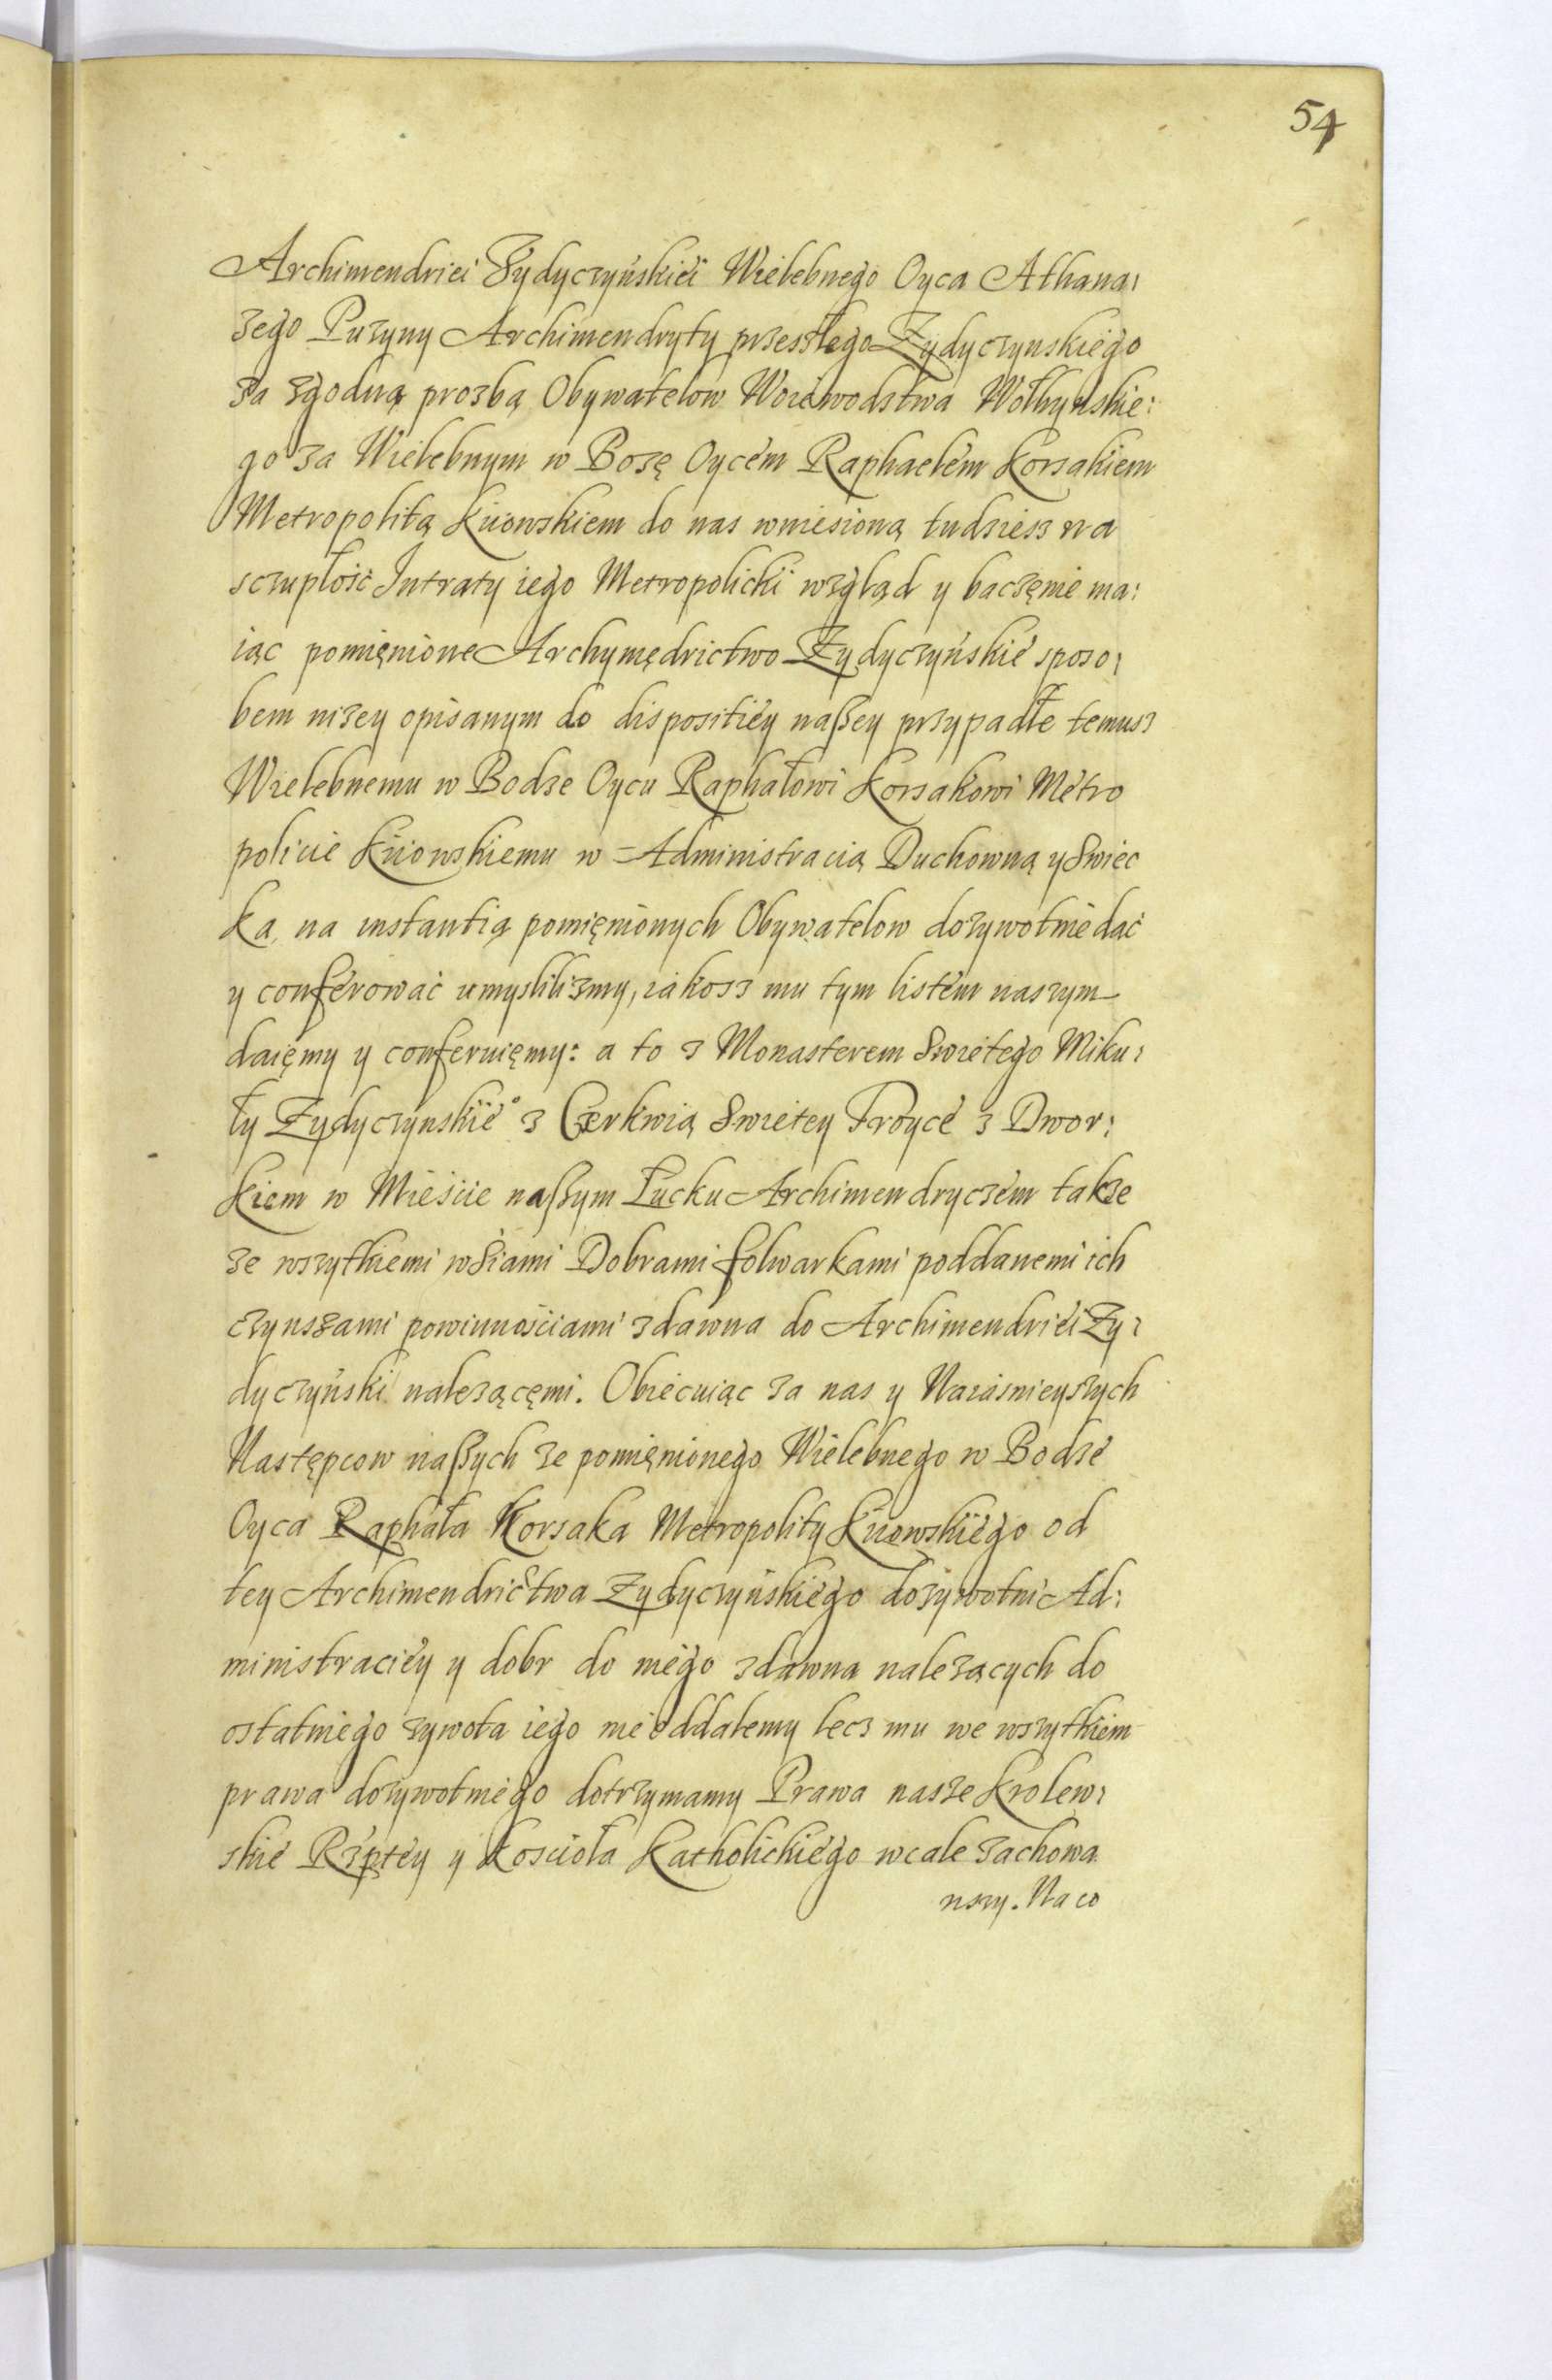 54
Archimendriei Zydyczyńskiei Wielebnego Oyca Athana:
zego Puzyny Archimendryty przeszłego Zydyczynskiego
za zgodną prozbą Obywatelow Woiewodstwa Wołhynskie:
go za Wielebnym w Bozę Oycem Raphaelem Korsakiem
Metropolitą Kiiowskiem do nas wniesioną tudziesz na
sczupłość Intraty iego Metropolicki wzgląd y baczęnie ma:
iąc pomięnione Archymędrictwo Zydyczyńskie sposo:
bem nizey opisanym do dispositiey naszey przypadłe temusz
Wielebnemu w Bodze Oycu Raphałowi Korsakowi Metro
policie Kiiowskiemu w Administracią Duchowną y Swiec
ką, na instantią pomięnionych Obywatelow dozywotnie dać
y conferować umyslilizmy, iakosz mu tym listem naszym
daięmy y conferuięmy: a to z Monasterem Swietego Miku:
ły Zydyczynskie° z Cerkwią Swietey Troyce z Dwor:
kiem w Mieście naszym Łucku Archimendryczem takze
ze wszytkiemi wsiami Dobrami folwarkami poddanemi ich
czynszami powinnościami zdawna do Archimendriei Zy:
dyczyński nalezącęmi. Obiecuiąc za nas y Naiasnieyszych
Następcow naszych ze pomięnionego Wielebnego w Bodze
Oyca Raphała Korsaka Metropolity Kiiowskiego od
tey Archimendrictwa Zydyczyńskiego dozywotni Ad:
ministraciey y dobr do niego zdawna nalezacych do
ostatniego zywota iego nie oddalemy lecz mu we wszytkiem
prawa dozywotniego dotrzymamy Prawa nasze Krolew:
skie Rzptey y Kościoła Katholickiego wcale zachowa
nszy. Na co